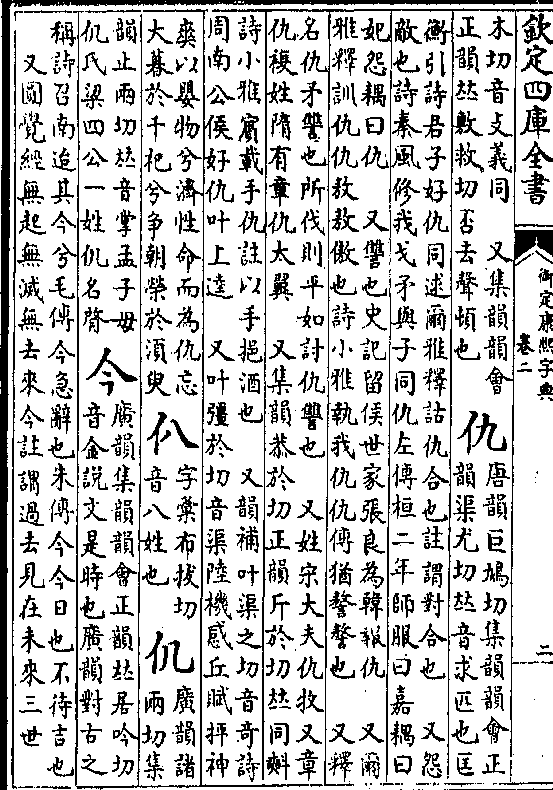 欽定四庫全書
御定康熙字典
卷二
二
木切音攴義同　又集韻韻會
正韻𠀤敷救切否去聲頓也
仇
唐韻巨鳩切集韻韻會正
韻渠尤切𠀤音求匹也匡
衡引詩君子好仇同逑爾雅釋詁仇合也註謂對合也　又怨
敵也詩秦風修我戈矛與子同仇左傳桓二年師服曰嘉耦曰
妃怨耦曰仇　又讐也史記留侯世家張良為韓報仇　又爾
雅釋訓仇仇敖敖傲也詩小雅執我仇仇傳猶謷謷也　又釋
名仇矛讐也所伐則平如討仇讐也　又姓宋大夫仇牧又章
仇複姓隋有章仇太翼　又集韻恭於切正韻斤於切𠀤同㪺
詩小雅賓載手仇註以手挹酒也　又韻補叶渠之切音奇詩
周南公侯好仇叶上逵　又叶彊於切音渠陸機感丘賦抨神
爽以嬰物兮濟性命而為仇忘
大暮於千祀兮争朝榮於湏臾
仈
字彙布拔切
音八姓也
仉
廣韻諸
兩切集
韻止兩切𠀤音掌孟子母
仉氏梁四公一姓仉名
今
廣韻集韻韻會正韻𠀤居吟切
音金說文是時也廣韻對古之
稱詩召南迨其今兮毛傳今急辭也朱傳今今日也不待吉也
又圓覺經無起無滅無去來今註謂過去見在未來三世